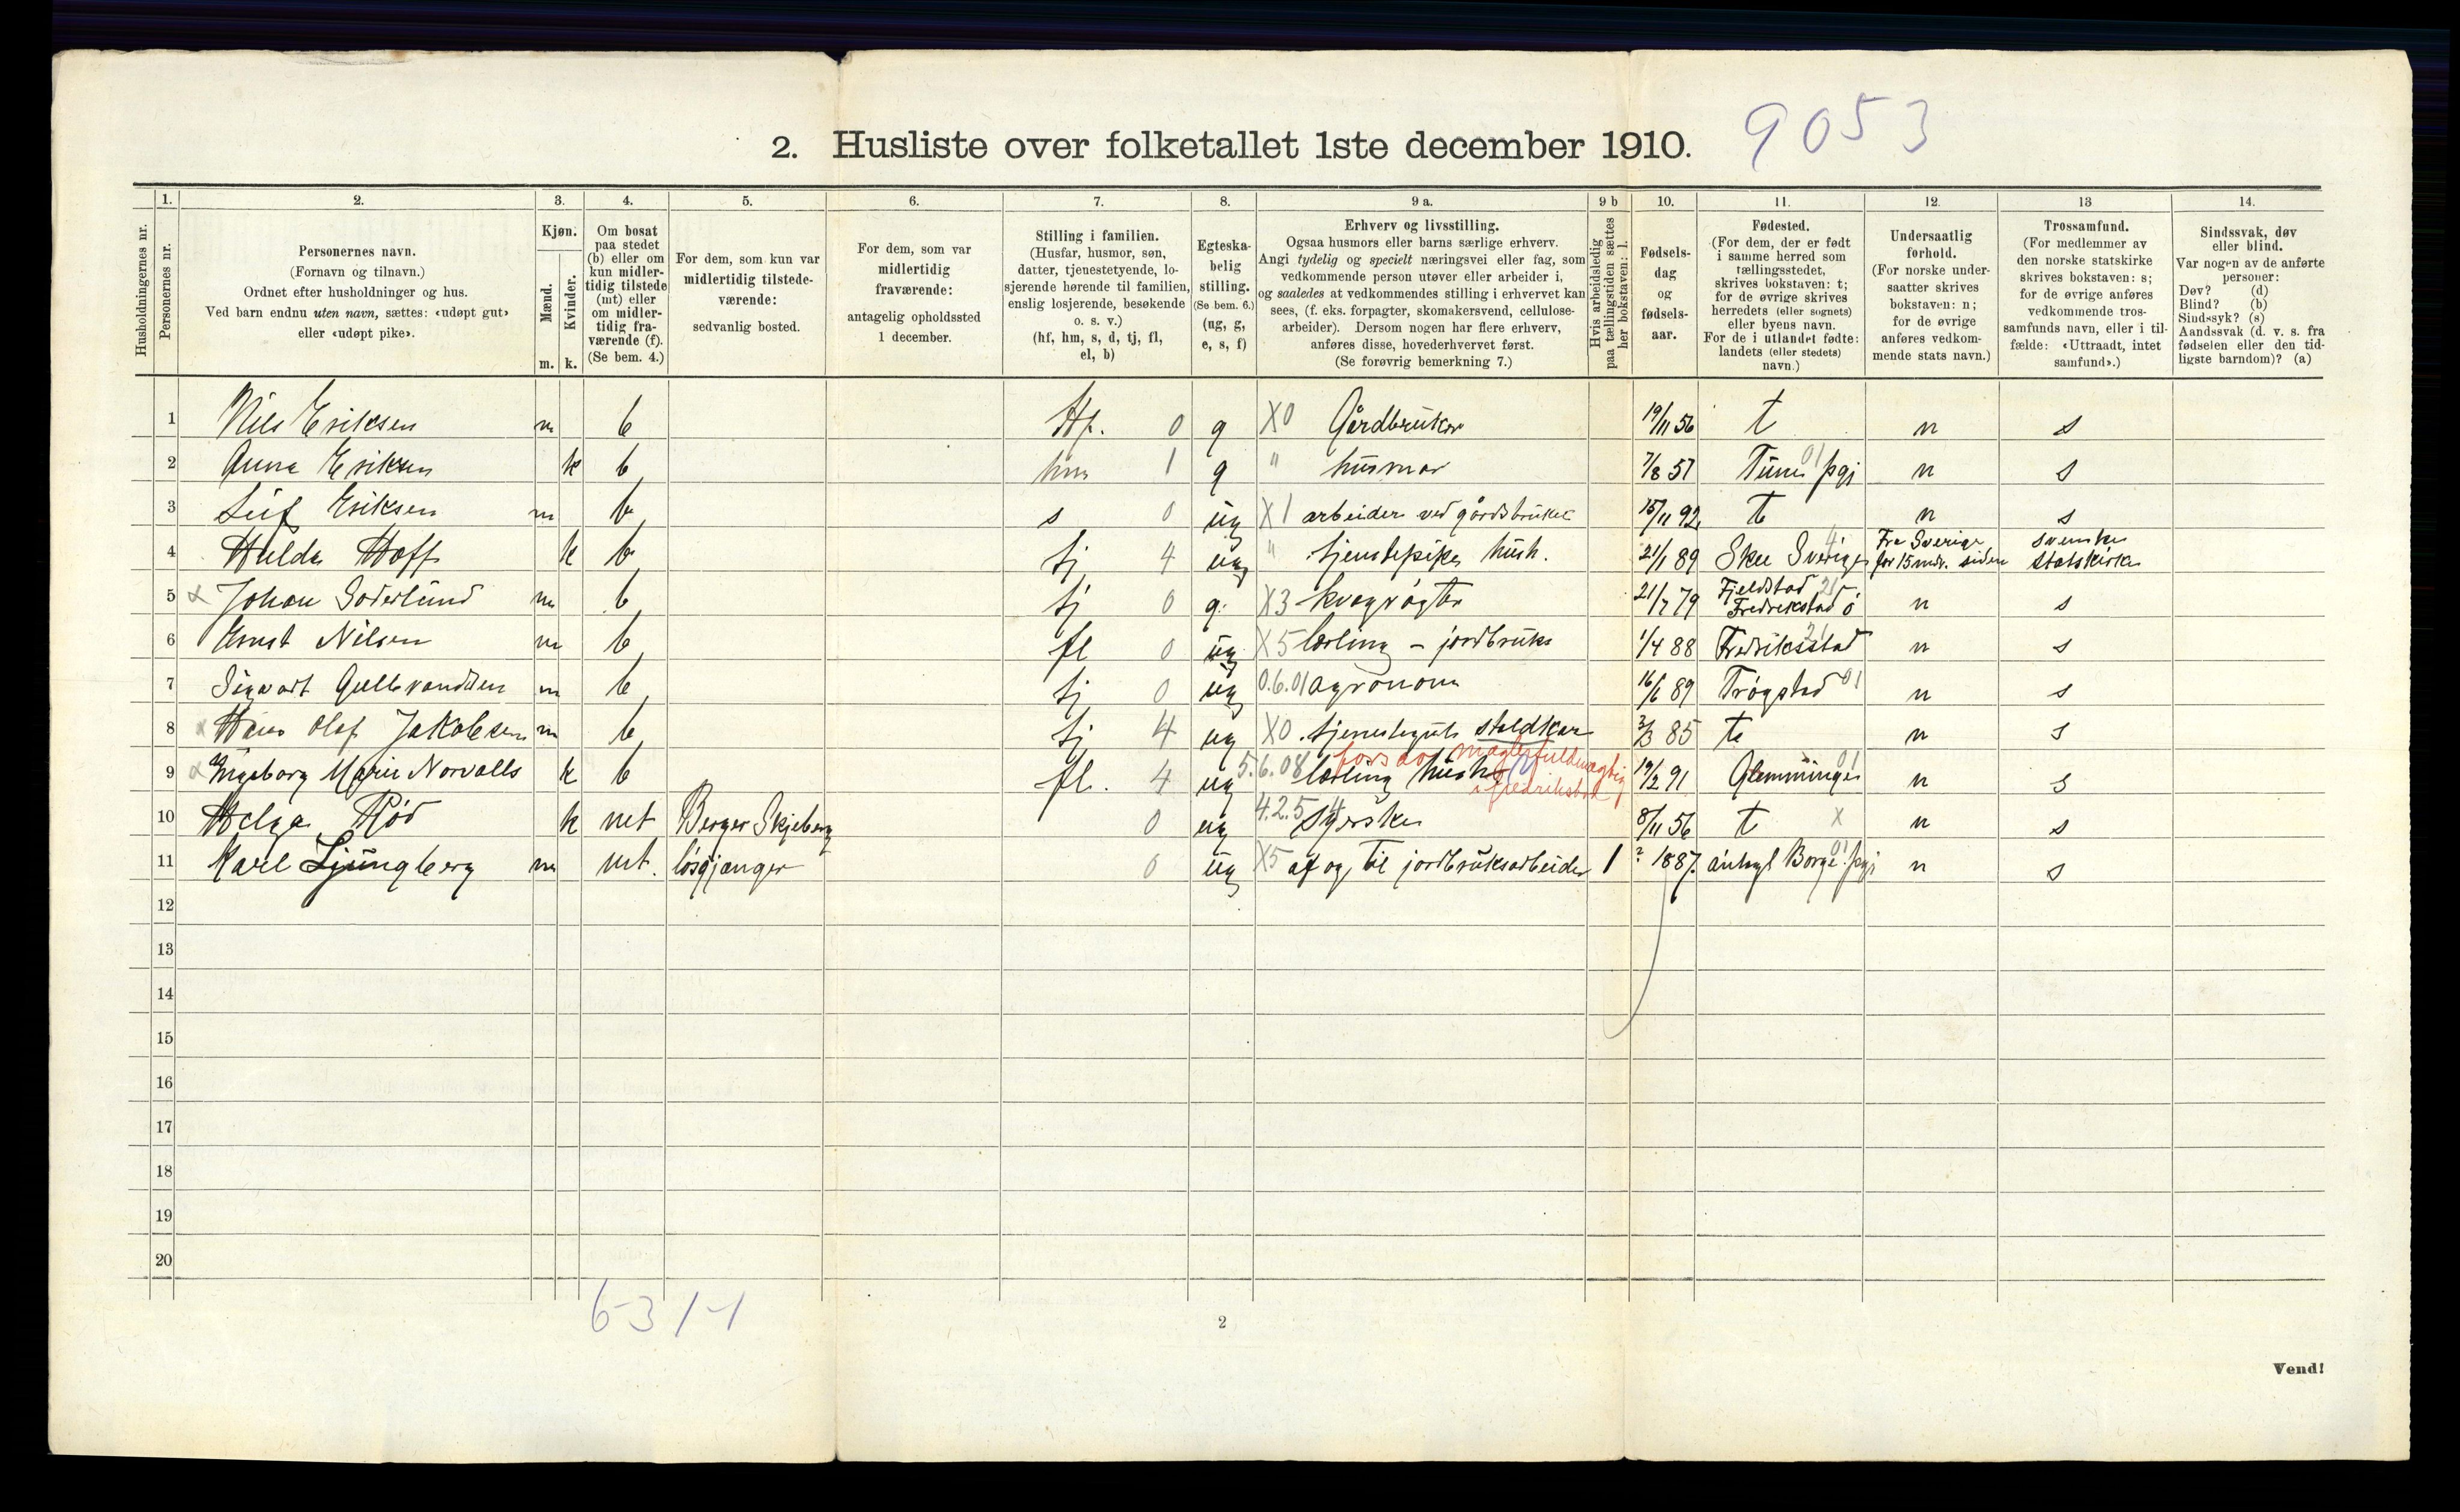 9053
2. Husliste over folketallet 1ste december 1910.
Husholdningernes nr.
1. Personernes nr.
2. Personernes navn.
(Fornavn og tilnavn.)
Ordnet efter husholdninger og hus.
Ved barn endnu uten navn, sættes: «udøpt gut»
eller «udøpt pike».
3. Kjøn.
Mænd. Kvinder.
m. k.
4. Om bosat
paa stedet
(b) eller om
kun midler-
tidig tilstede
(mt) eller
om midler-
tidig fra-
værende (f).
(Se bem. 4.)
5. For dem, som kun var
midlertidig tilstede-
værende:
sedvanlig bosted.
6. For dem, som var
midlertidig
fraværende:
antagelig opholdssted
1 december.
7. Stilling i familien.
(Husfar, husmor, søn,
datter, tjenestetyende, lo-
sjerende hørende til familien,
enslig losjerende, besøkende
o. s. v.)
(hf, hm, s, d, tj, fl,
el, b)
8. Egteska-
belig
stilling.
(Se bem. 6.)
(ug, g,
e, s, f)
9 a. Erhverv og livsstilling.
Ogsaa husmors eller barns særlige erhverv.
Angi tydelig og specielt næringsvei eller fag, som
vedkommende person utøver eller arbeider i,
og saaledes at vedkommendes stilling i erhvervet kan
sees, (f. eks. forpagter, skomakersvend, cellulose-
arbeider). Dersom nogen har flere erhverv,
anføres disse, hovederhvervet først.
(Se forøvrig bemerkning 7.)
9 b Hvis arbeidsledig
paa tællingstiden sættes
her bokstaven: l.
10. Fødsels-
dag
og
fødsels-
aar.
11. Fødested.
(For dem, der er født
i samme herred som
tællingsstedet,
skrives bokstaven: t;
for de øvrige skrives
herredets (eller sognets)
eller byens navn.
For de i utlandet fødte:
landets (eller stedets)
navn.)
12. Undersaatlig
forhold.
(For norske under-
saatter skrives
bokstaven: n;
for de øvrige
anføres vedkom-
mende stats navn.)
13 Trossamfund.
(For medlemmer av
den norske statskirke
skrives bokstaven: s;
for de øvrige anføres
vedkommende tros-
samfunds navn, eller i til-
fælde: «Uttraadt, intet
samfund».)
14. Sindssvak, døv
eller blind.
Var nogen av de anførte
personer:
Døv? (d)
Blind? (b)
Sindssyk? (s)
Aandssvak (d. v. s. fra
fødselen eller den tid-
ligste barndom)? (a)
1 Nils Eriksen m b Hf. 0 g X0 Gårdbruker 19/11 56 t n s
2 Anna Eriksen k b hm 1 g " husmor 7/8 57 Tune 01 pgj n s
3 Leif Eriksen m b s 0 ug X1 arbeider ved gårdsbruket 15/11 92 t n s
4 Hulda Hoff k b tj 4 ug " tjenstepike hush. 21/1 89 Skee Sverige 4 Fra Sverige for 15 mdr. siden svenske statskirke
5 Johan Soderlund m b tj 0 g. X3 kvægrøgter 21/7 79 Fjeldstad Fredrikstad n s
6 Ernst Nilsen m b fl 0 ug X5 lærling - jordbruks 1/4 88 Fredriksstad n s
7 Sigvart Gulbrandsen m b tj 0 ug 0.6.01 agronom 16/6 89 Trøgstad 01 n s
8 Hans Olaf Jakobsen m b tj 4 ug X0 tjenestegut staldkar 3/3 85 t n s
9 Ingeborg Marie Norvalls k b fl. 4 ug 5.6.08 lærling hush. 19/2 91 Glemminge 01 n s
fors av mæglerfuldmægtig
i Fredrikstad
10 Helga Rød k mt Berger Skjeberg 0 ug 4.2.5 syerske 8/11 56 t X n s
11 Karl Ljungberg m mt. løsgjænger 0 ug X5 af og til jordbruksarbeider l ? 1887. Borge 01 pgj n s
12
13
14
15
16
17
18
19
20
2
Vend!